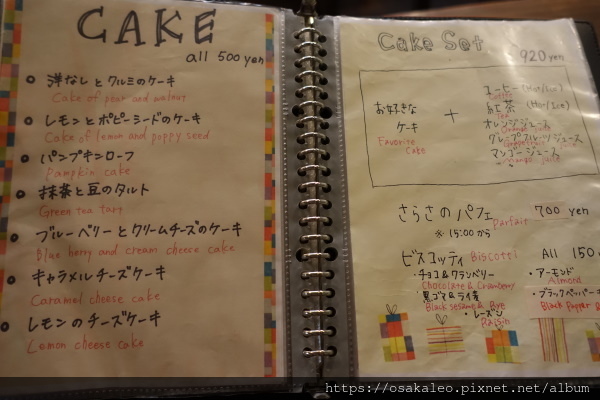 CAKE
all 500 yen
洋なしとクルミのケーキ
Cake of pear and walnut
レモンとポピーシードのケーキ
Cake of lemon and poppy seed
パンプキンローフ
Pampkin cake
抹茶と豆のタルト
Green tea tart
ブルーベリーとクリームチーズのケーキ
Blue berry and cream cheece cake
キャラメルチーズケーキ
Caramel cheese cake
レモンのチーズケーキ
Lemon cheese cake
Cake Set
920 yen
お好きな
ケーキ
Favorite
Cake
+
コーヒー (Hot/Ice)
Coffee
紅茶 (Hot/Ice)
Tea
オレンジジュース
Orange juice
グレープフルーツジュース
Grapefruit juice
マンゴージュース
Mango juice
さらさのパフェ Parfait 700 yen
※ 15:00から
ビスコッティ Biscotti All 150
・チョコ&クランベリー
Chocolate & Cranberry
黒ゴマ&ライ麦
Black sesame & Rye
・レーズン
Raisin
・アーモンド
Almond
・ブラックペッパー
Black Pepper
https://osakaleo.pixnet.net/album